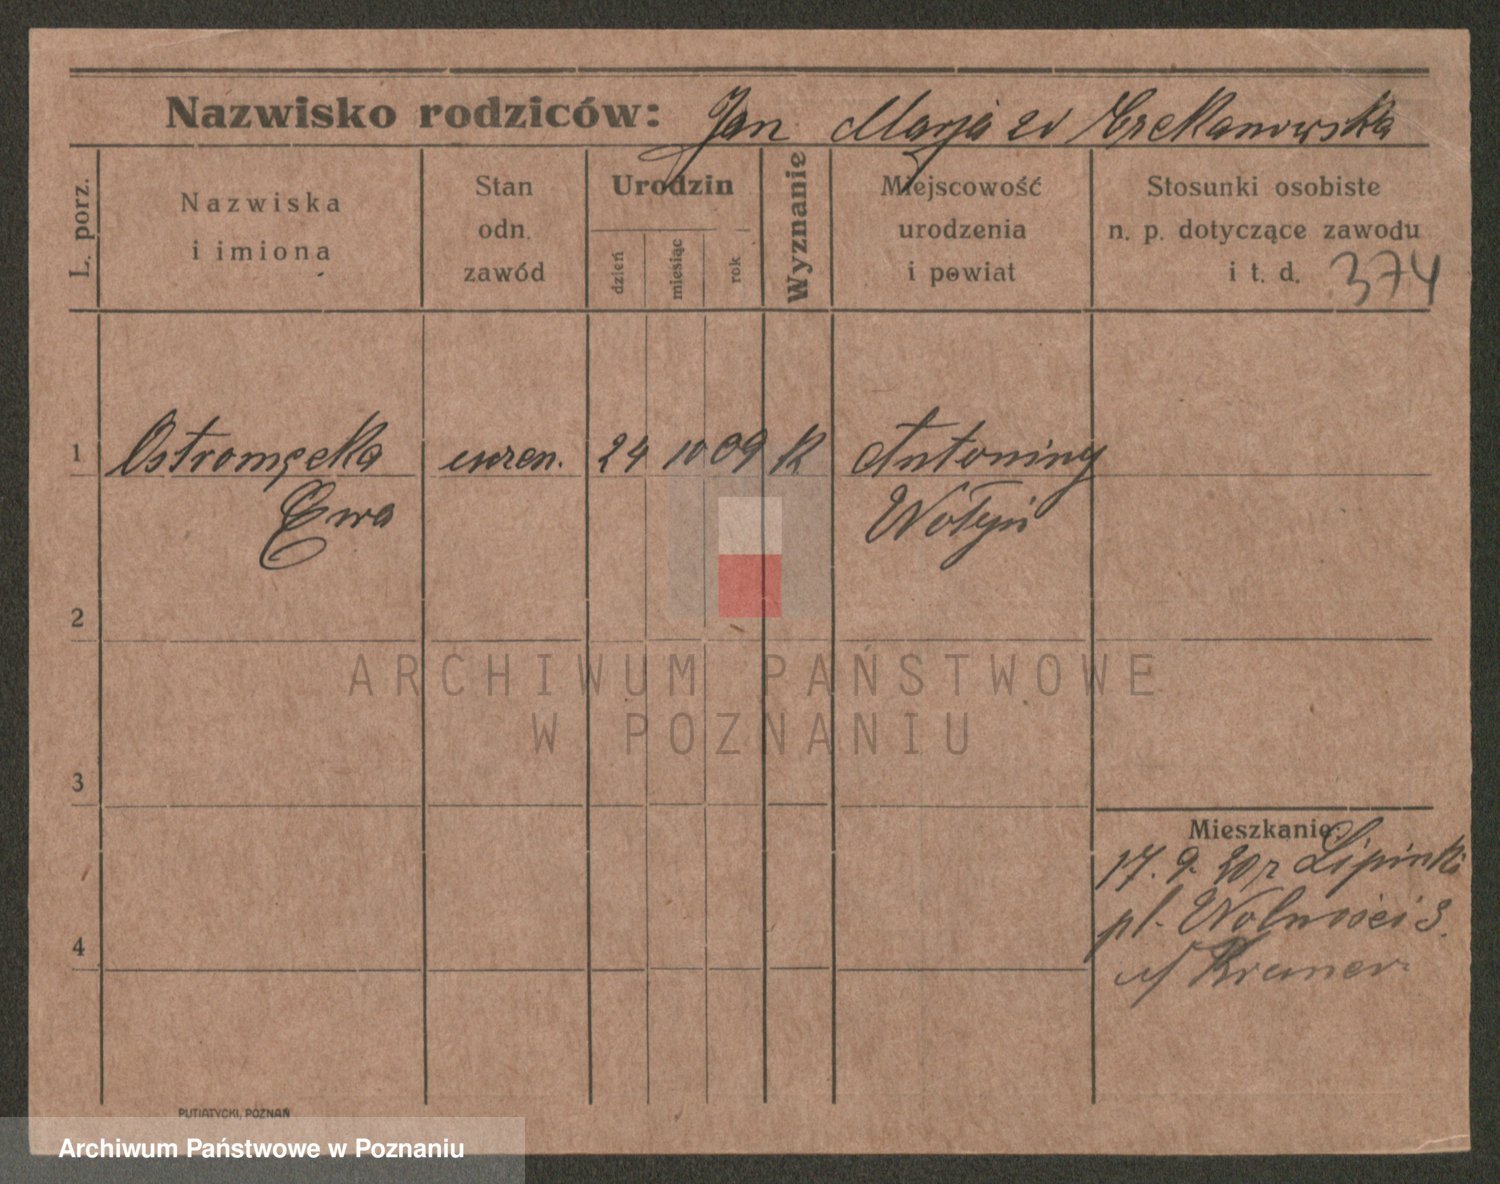 Nazwisko rodziców: Jan Marja zd Czekanowska
L. porz.
Nazwiska
i imiona
Stan
odn.
zawód
Urodzin
dzień
miesiąc
rok
Wyznanie
Miejscowość
urodzenia
i powiat
Stosunki osobiste
n. p. dotyczące zawodu
i t. d. 374
1 Ostromęcka uczen. 24 10 09 K Antoniny
Ewa Wołyń
2
ARCHIWUM PAŃSTWOWE
W POZNANIU
3
Mieszkanie:
17. 9. 20 z Lipinki
pl. Wolności 3.
4
Kramer
PUTIATYCKI, POZNAŃ
Archiwum Państwowe w Poznaniu